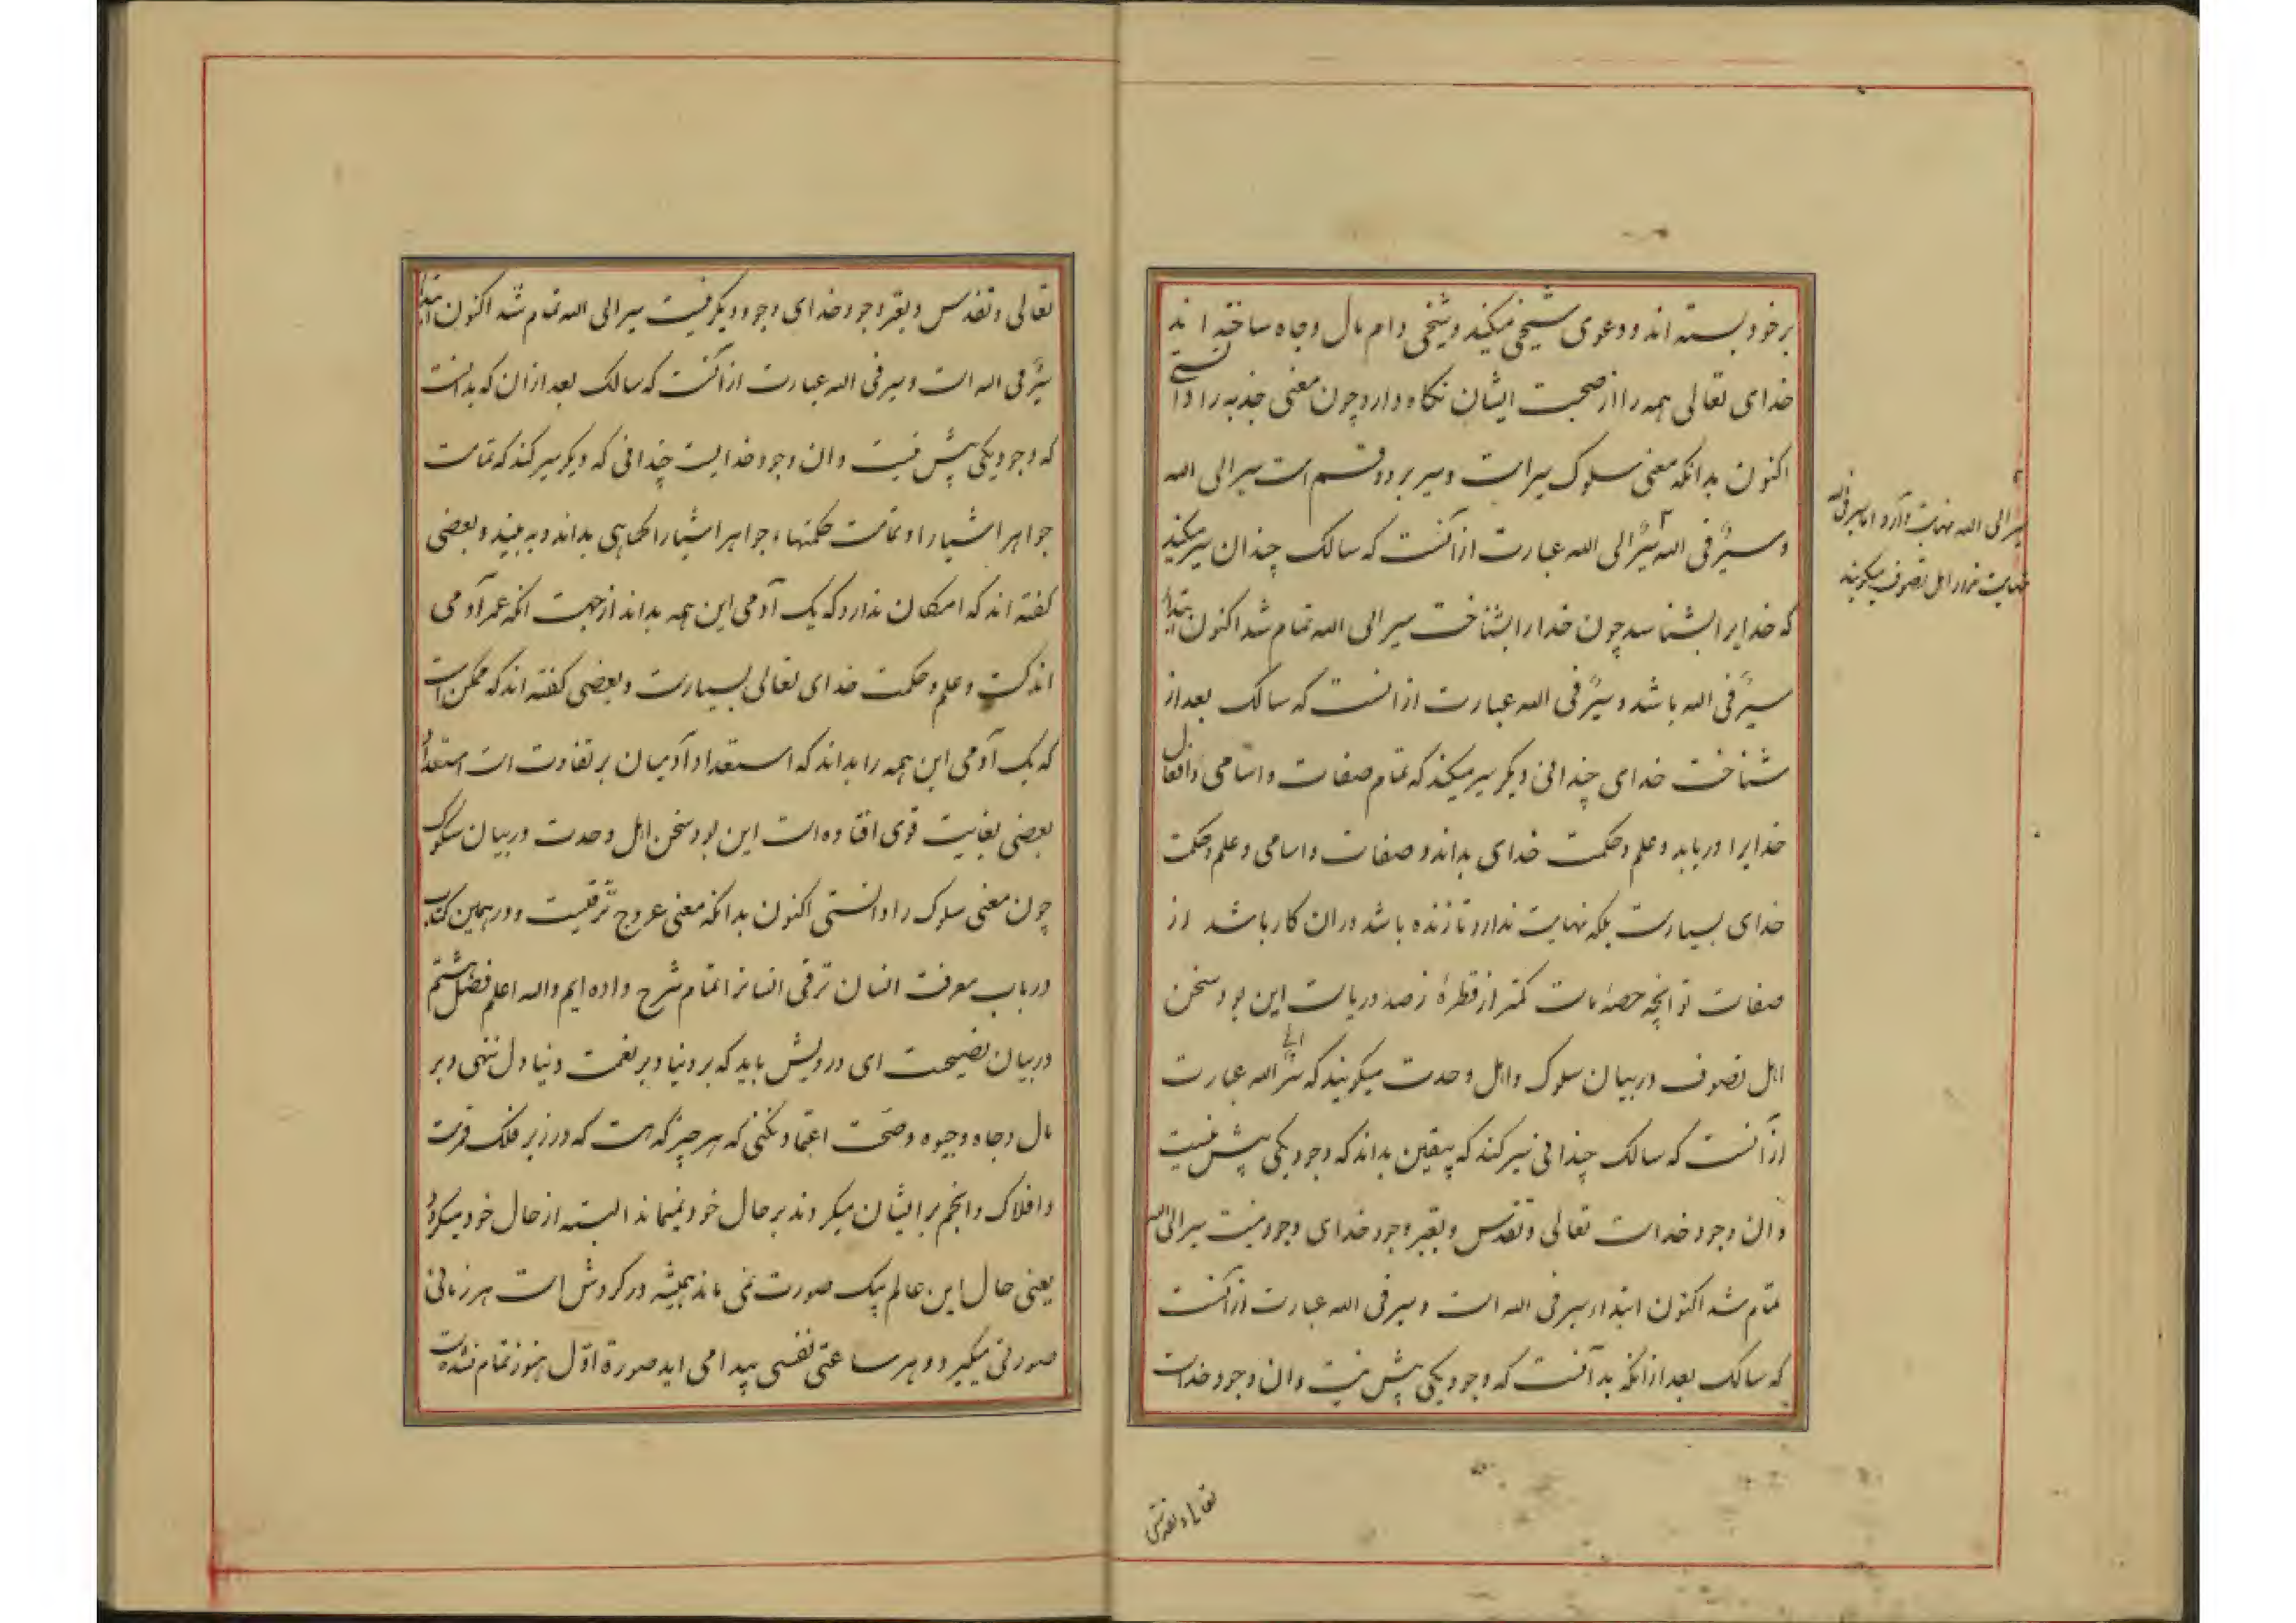 برخود بسته اند و دعوی شیخی میکنند و شیخی دام مال و جاه ساخته اند
خدای تعالی همه را از صحبت ایشان نگاه دارد چون معنی جذبه را دانستی
اکنون بدانکه معنی سلوک سیرایت و سیر بر دو قسم است سیر الی الله
و سیر فی الله سیر الی الله عبارت ازآنست که سالک چندان سیر میکند
که خدایرا بشناسد چون خدارا بشناخت سیر الی الله تمام شد اکنون ابتدای
سیر فی الله باشد و سیر فی الله عبارت ازانست که سالک بعد از
شناخت خدای چندانی دیگر سیر میکند که تمام صفات و اسامی و افعال
خدایرا دریابد و علم و حکمت خدای بداند و صفات و اسامی و علم و حکمت
خدای بسیارست بلکه نهایت ندارد تا زنده باشد دران کار باشد از
صفات تو انچه حصهٔ ماست کمتر از قطرهٔ زصد دریاست این بود سخن
اهل تصوف در بیان سلوک و اهل وحدت میگویند که سیر الی الله عبارت
ازآنست که سالک چندانی سیر کند که بیقین بداند که وجود یکی پیش نیست
و ان وجود خداست تعالی و تقدس و بغیر وجود خدای وجود نیست سیر الی الله
تمام شد اکنون ابتداء سیر فی الله است و سیر فی الله عبارت ازآنست
که سالک بعد ازانکه بدانست که وجود یکی پیش نیست و ان وجود خداست
سیر الی الله نهایت دارد اما سیر فی الله
نهایت ندارد اهل تصوف میگویند
تعالی و تقدس
تعالی و تقدس و بغیر وجود خدای وجود دیگر نیست سیر الی الله تمام شد اکنون ابتدا
سیر فی الله است و سیر فی الله عبارت ازآنست که سالک بعد ازان که بدانست
که وجود یکی پیش نیست و ان وجود خدایست چندانی که دیگر سیر کند که تمامت
جواهر اشیا را و تمامت حکمتهاء جواهر اشیا را کماهی بداند و به بیند و بعضی
گفته اند که امکان ندارد که یک آدمی این همه بداند ازجهت انکه عمر آدمی
اندکست و علم و حکمت خدای تعالی بسیارست و بعضی گفته اند که ممکن است
که یک آدمی این همه را بداند که استعداد آدمیان بر تفاوت است استعداد
بعضی بغایت قوی افتاده است این بود سخن اهل وحدت در بیان سلوک
چون معنی سلوک را دانستی اکنون بدانکه معنی عروج ترقیست و در همین کتاب
در باب معرفت انسان ترقی انسانرا تمام شرح داده ایم والله اعلم فصل هشتم
در بیان نصیحت ای درویش باید که بر دنیا و بر نعمت دنیا دل ننهی و بر
مال و جاه و حیوة و صحت اعتماد نکنی که هر چیز که هست که در زیر فلک قمرست
و افلاک و انجم بر ایشان میکردند بر حال خود نمیماند البته از حال خود میکرد
یعنی حال این عالم بیک صورت نمی ماند همیشه در کردش است هر زمانی
صورتی میگیرد و هر ساعتی نقشی پیدا می اید صورة اوّل هنوز تمام نشده است